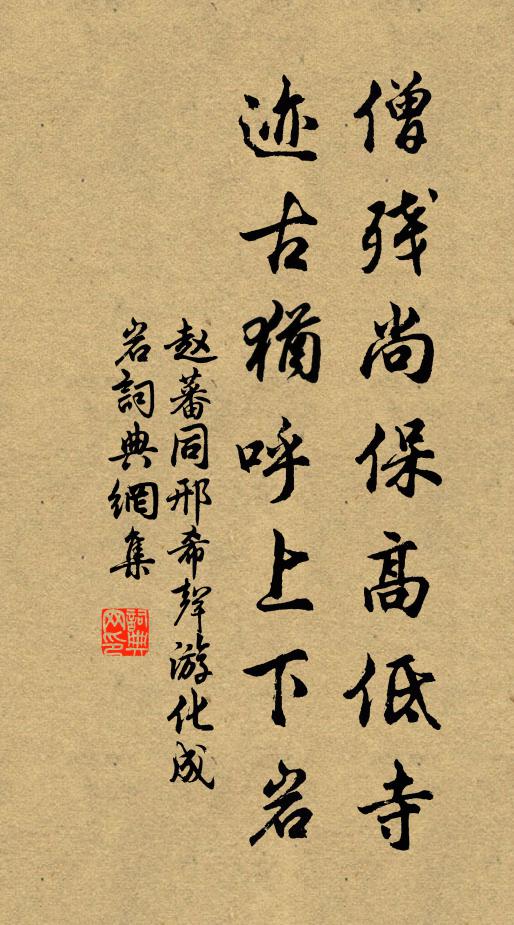 僧残尚保高低寺
迹古猶呼上下岩
赵蕃同邢希聲游化成
岩詞典網集
詞典
网印